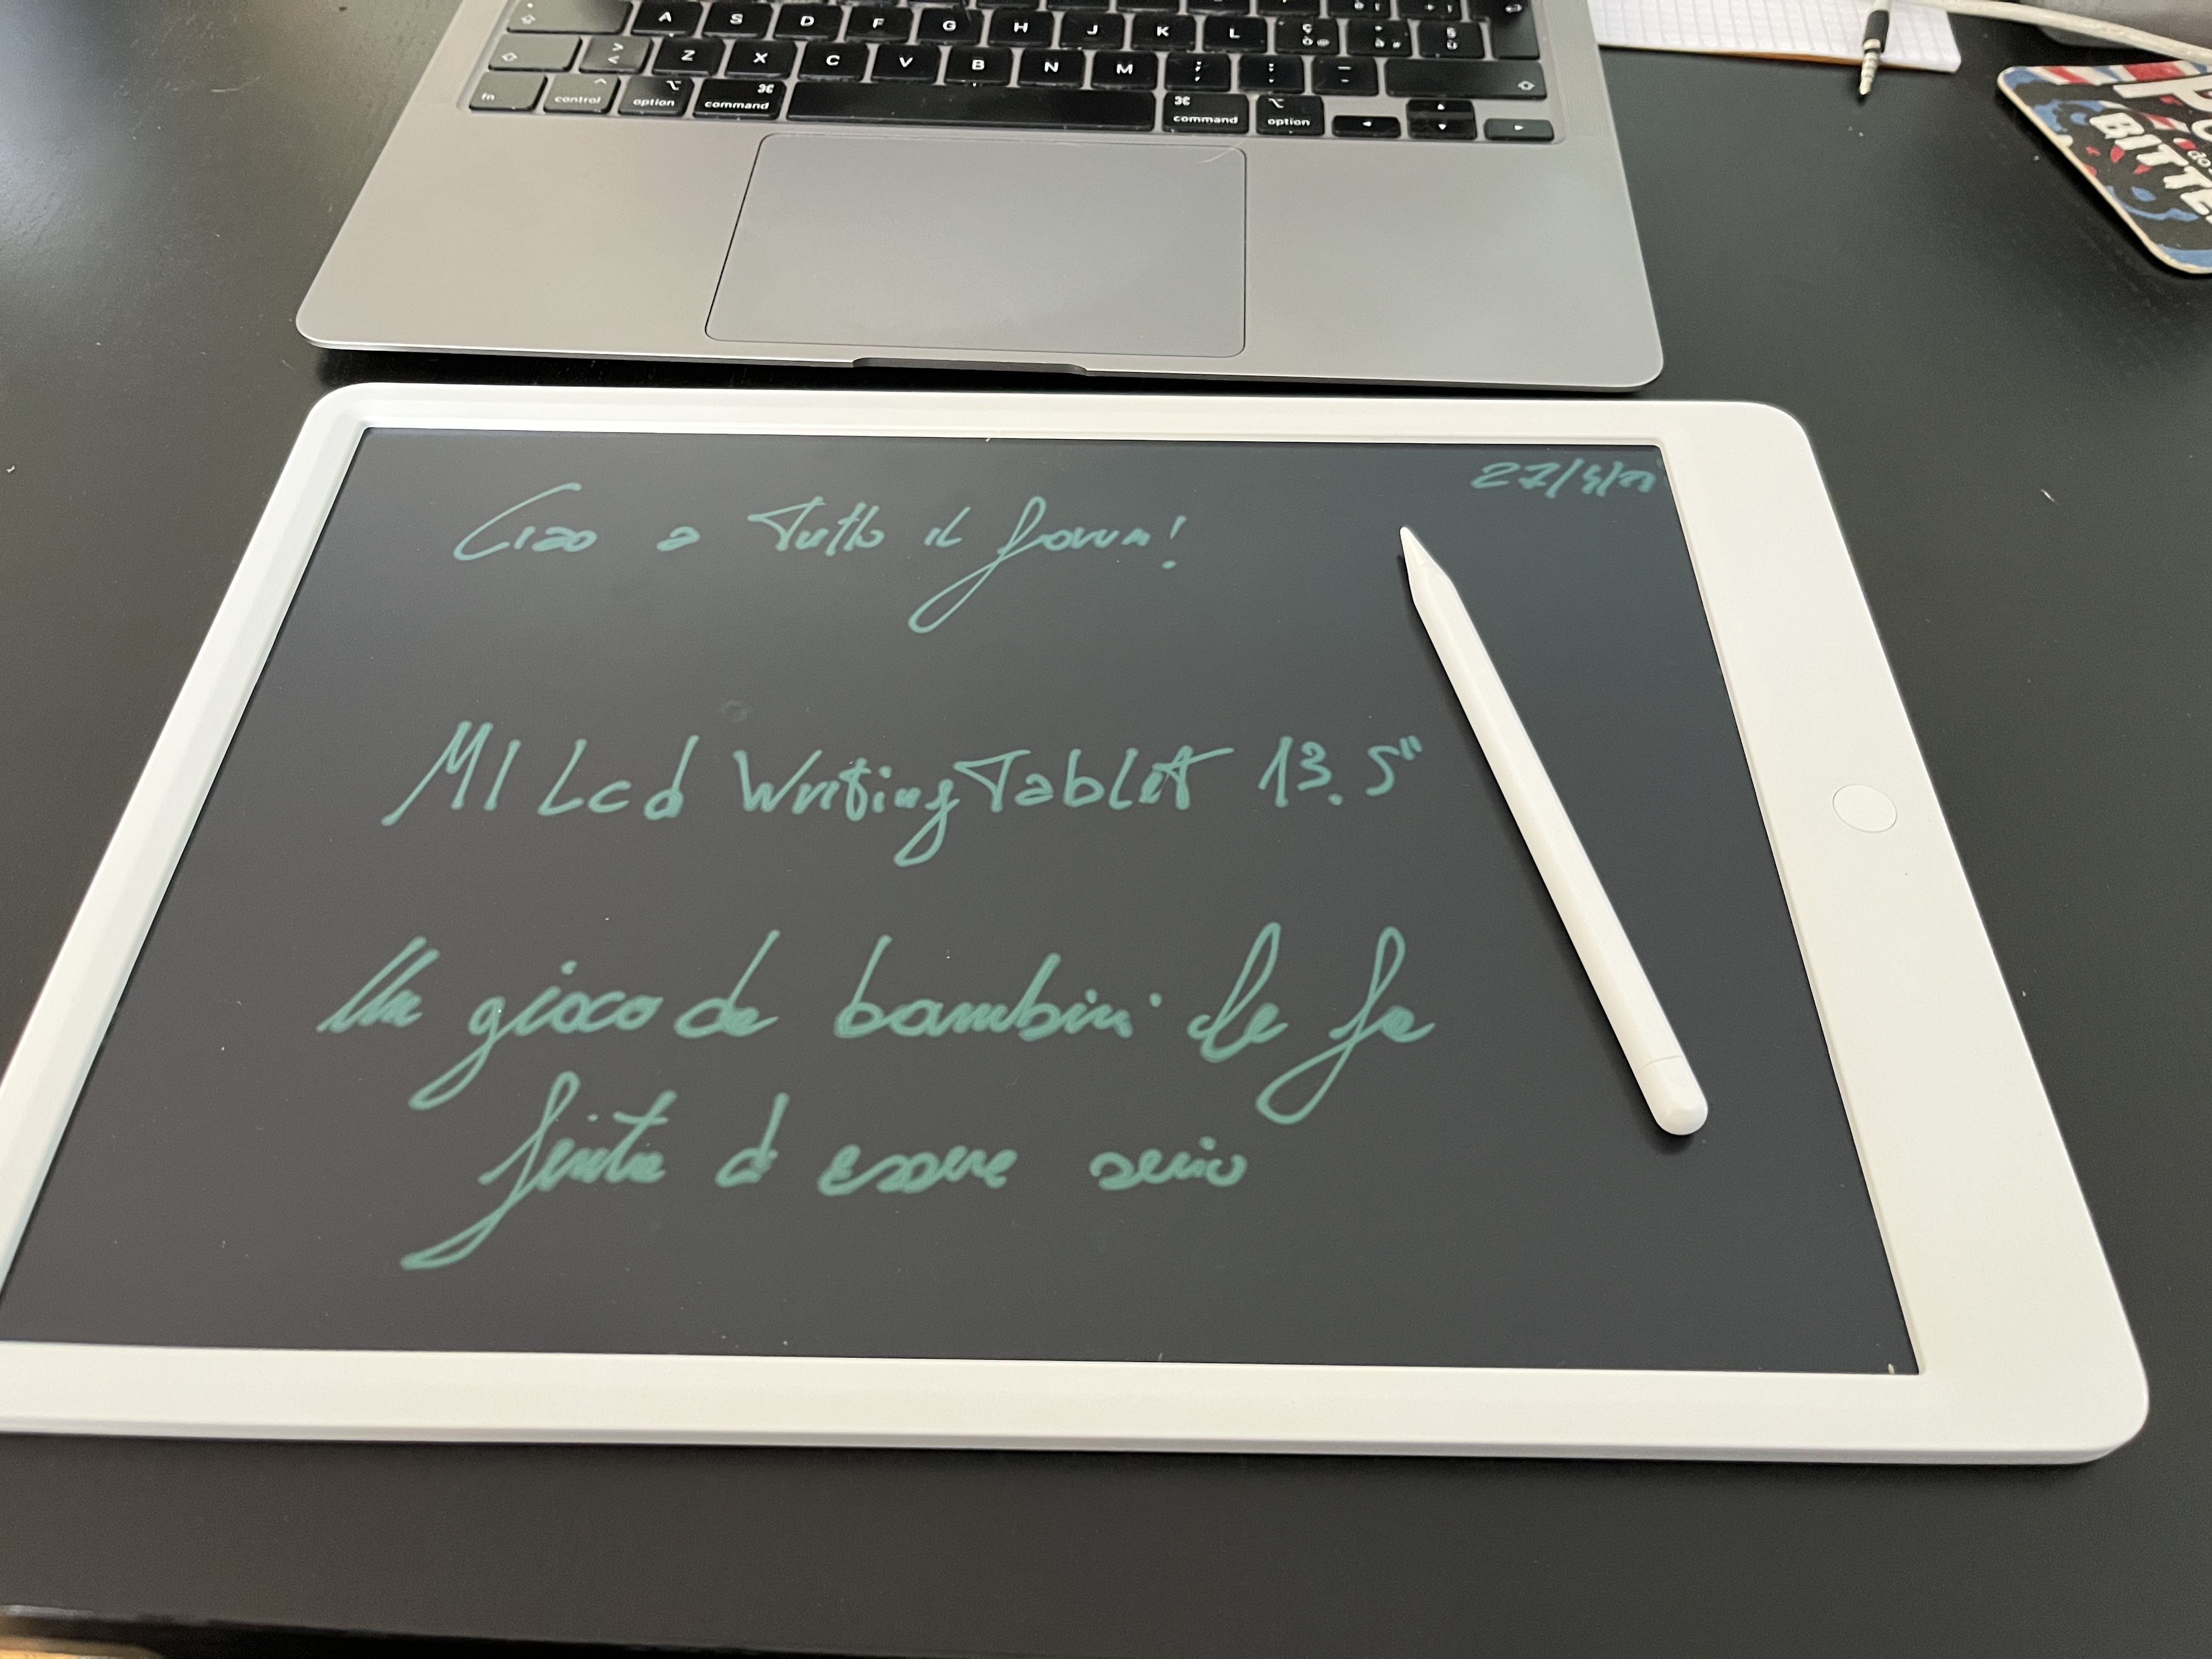 A S D F G H J K L
Z X C V B N M
fn control option command command option
BITTE
27/4/21
Ciao a Tutto il forum!
MI Lcd Writing Tablet 13.5"
Un gioco da bambini che fa
finta di essere serio